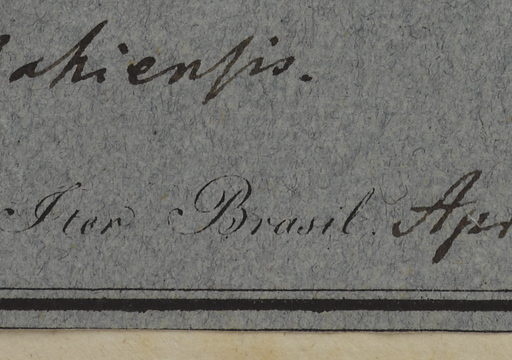 ahienſis.
Iter Brasil. Apr